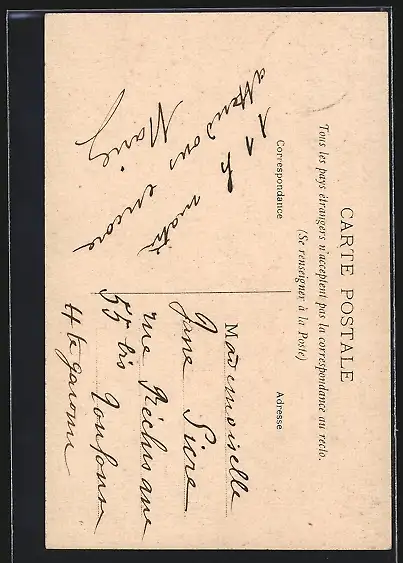 CARTE POSTALE
Tous les pays étrangers n'acceptent pas la correspondance au recto.
(Se renseigner à la Poste)
Correspondance
Adresse
11 h matin
attendons encore
Marie
Mademoiselle
Jane Sicre
rue
55 bis Toulouse
Hte garonne